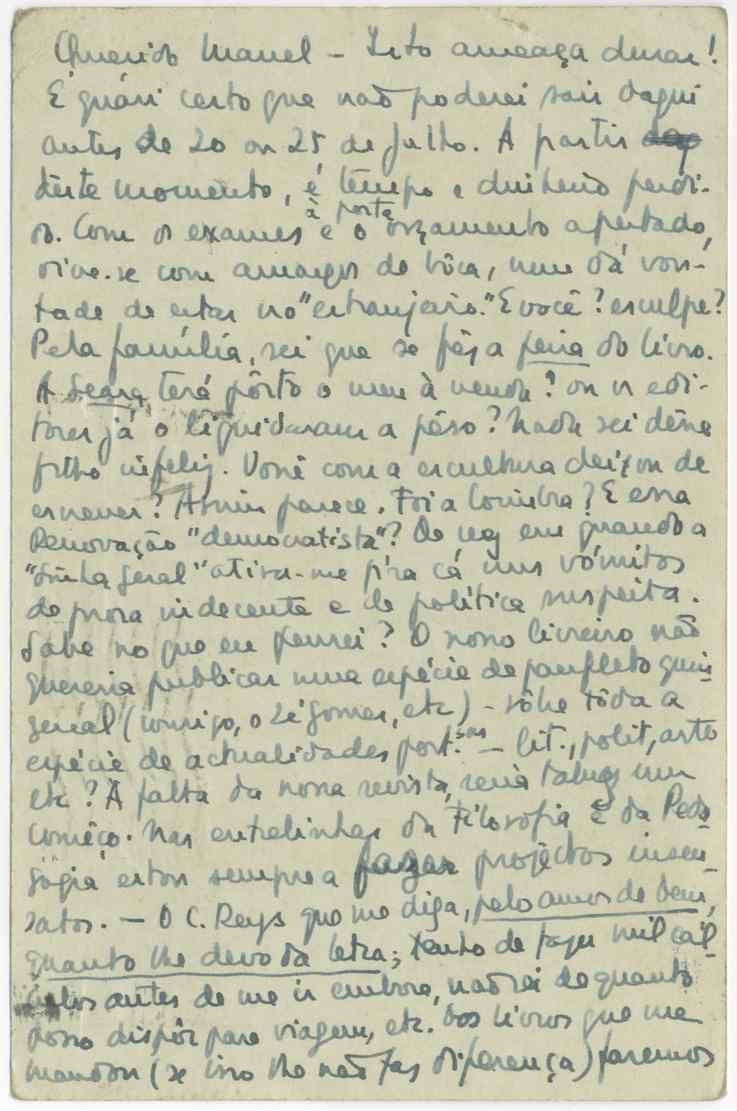 Querido Manel – Isto ameaça durar!
É quási certo que não poderei sair daqui
antes de 20 ou 25 de Julho. A partir
dêste momento, é tempo e dinheiro perdi-
do. Com os exames à porta e o orçamento apertado,
vive-se com amargos de bôca, nem dá von-
tade de estar no "estranjeiro." E você? esculpe?
Pela família, sei que se fêz a feira do livro.
A Seara terá pôsto o meu à venda? ou os edi-
tores já o liquidaram a pêso? Nada sei dêsse
filho infeliz. Você com a escultura deixou de
escrever? Assim parece. Foi a Coimbra? E essa
Renovação "democratista"? De vez em quando a
"Sintla Geral" atira-me p'ra cá uns vómitos
de prosa indecente e de política suspeita.
Sabe no que eu pensei? O nosso livreiro não
quereria publicar uma espécie de panfleto quin-
zenal (comigo, o Zé Gomes, etc) – sôbre tôda a
espécie de actualidades port.sas – lit., polit, arte
etc? À falta da nossa revista, seria talvez um
comêço. Nas entrelinhas da Filosofia e da Peda-
gogia estou sempre a fazer projectos insen-
satos. – O C. Reys que me diga, pelo amor de Deus,
quanto lhe devo da letra; tenho de fazer mil cál-
culos antes de me ir embora, não sei de quanto
posso dispôr para viagem, etc. Dos livros que me
mandou (se isso lhe não faz diferença) faremos